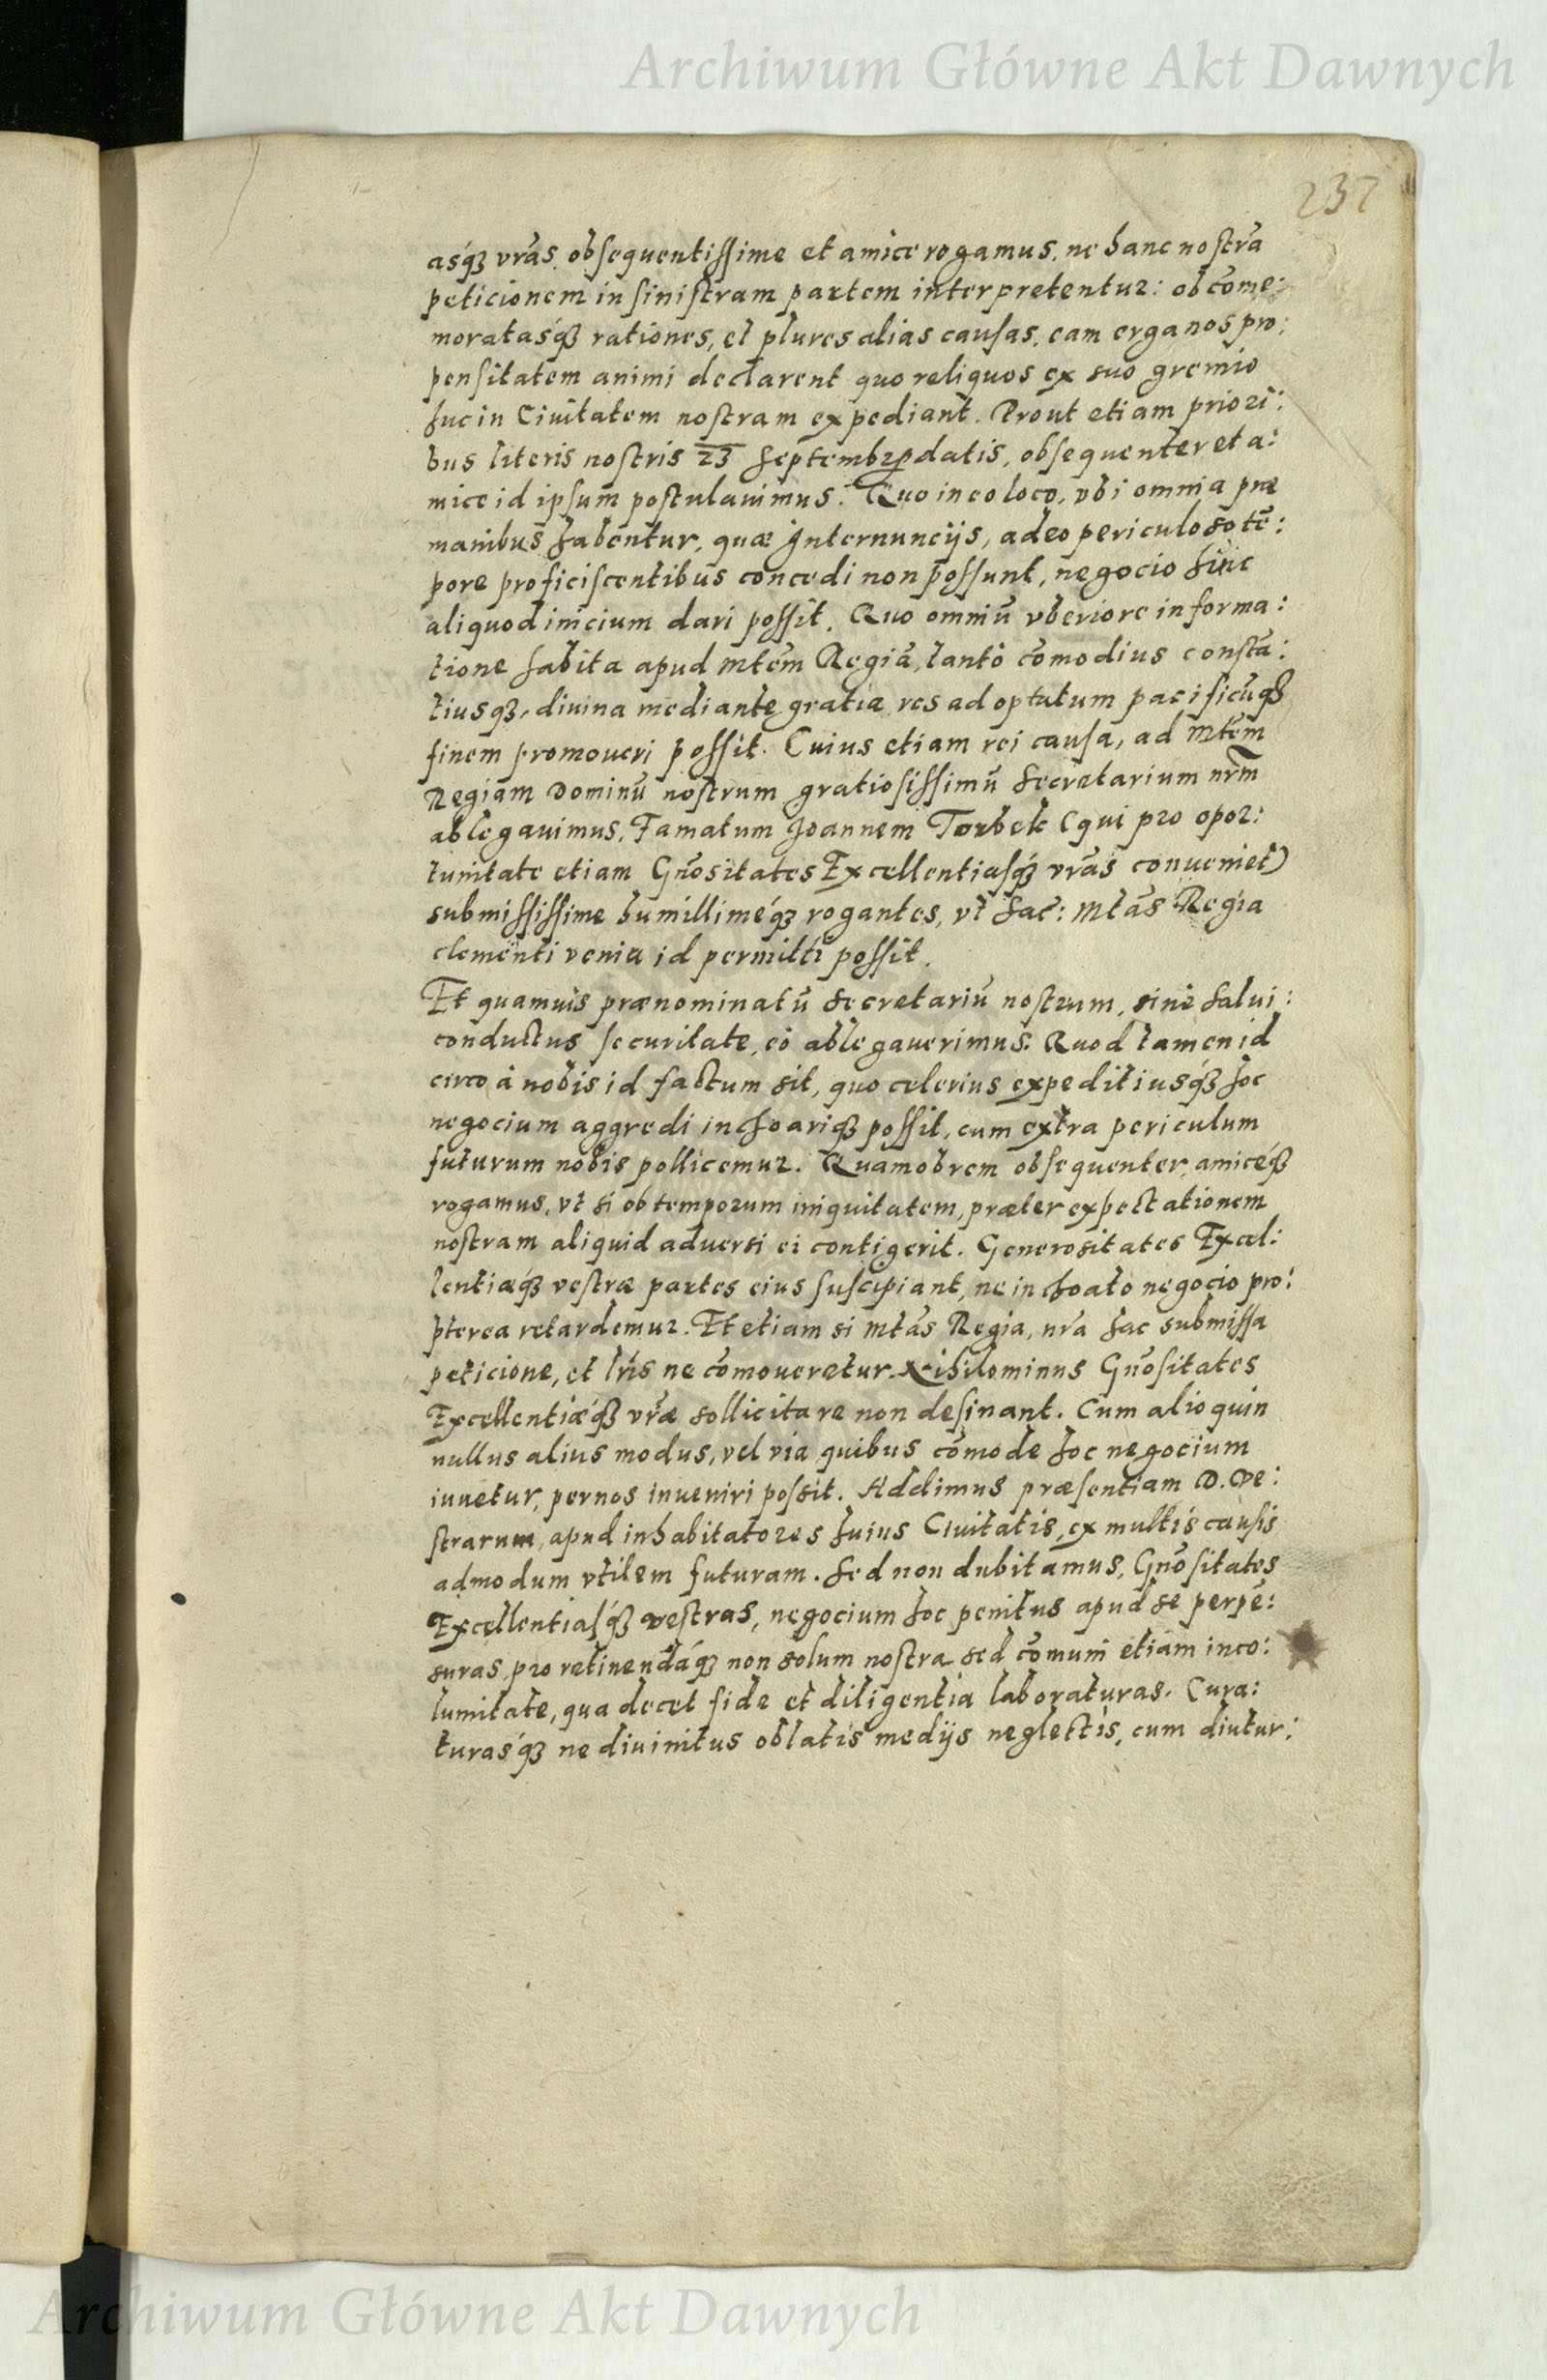 Archiwum Główne Akt Dawnych
237
asq́ꝫ vr̃as. obsequentissime et amice rogamus. ne hanc nostrã
peticionem in sinistram partem interpretentur: ob cõme:
moratasq́ꝫ rationes, et plures alias causas. eam erga nos pro:
pensitatem animi declarent quo reliquos ex suo gremio
huc in Ciuitatem nostram expediant. Prout etiam priori:
bus literis nostris 23 Septembr. datis, obsequenter et a:
mice id ipsum postulauimus. Quo in eo loco, vbi omnia præ
manibus habentur, quæ Internuncijs, adeo periculoso tẽ:
pore proficiscentibus concedi non possunt, negocio huic
aliquod inicium dari possit. Quo omniũ vberiore informa:
tione habita apud Mtẽm Regiã, tantò cõmodius constã:
tiusqꝫ, diuina mediante gratia res ad optatum pacificũqꝫ
finem promoueri possit. Cuius etiam rei causa, ad Mtẽm
Regiam Dominũ nostrum gratiosissimũ Secretarium nr̃m
ablegauimus, Famatum Joannem Torbek (qui pro opor:
tunitate etiam Gñositates Excellentiasq́ꝫ vr̃as conueniet)
submississime humillimeq́ꝫ rogantes, vt Sac: Mtãs Regia
clementi venia id permitti possit.
Et quamuis prænominatũ Secretariũ nostrum, sine Salui:
conductus securitate, eò ablegauerimus. Quod tamen id
circo à nobis id factum sit, quo celerius expeditiusq́ꝫ hoc
negocium aggredi inchoariqꝫ possit, cum extra periculum
futurum nobis pollicemur. Quamobrem obsequenter, amiceq́ꝫ
rogamus, vt si ob temporum iniquitatem, præter expectationem
nostram aliquid aduersi ei contigerit. Generositates Excel:
lentiæq́ꝫ vestræ partes eius suscipiant, ne inchoato negocio pro:
pterea retardemur. Et etiam si Mtãs Regia, nr̃a hac submissa
peticione, et lr̃is ne cõmoueretur. Nihilominus Gñositates
Excellentiæq́ꝫ vr̃æ sollicitare non desinant. Cum alioquin
nullus alius modus, vel via quibus cõmode hoc negocium
iuuetur, per nos inueniri possit. Addimus præsentiam D. Ve:
strarum, apud inhabitatores huius Ciuitatis, ex multis causis
admodum vtilem futuram. Sed non dubitamus, Gñositates
Excellentiasq́ꝫ vestras, negocium hoc penitus apud se perpẽ:
suras, pro retinendaq́ꝫ non solum nostra sed cõmuni etiam inco:
lumitate, qua decet fide et diligentia laboraturas. Cura:
turasq́ꝫ ne diuinitus oblatis medijs neglectis, cum diutur:
Archiwum Główne Akt Dawnych